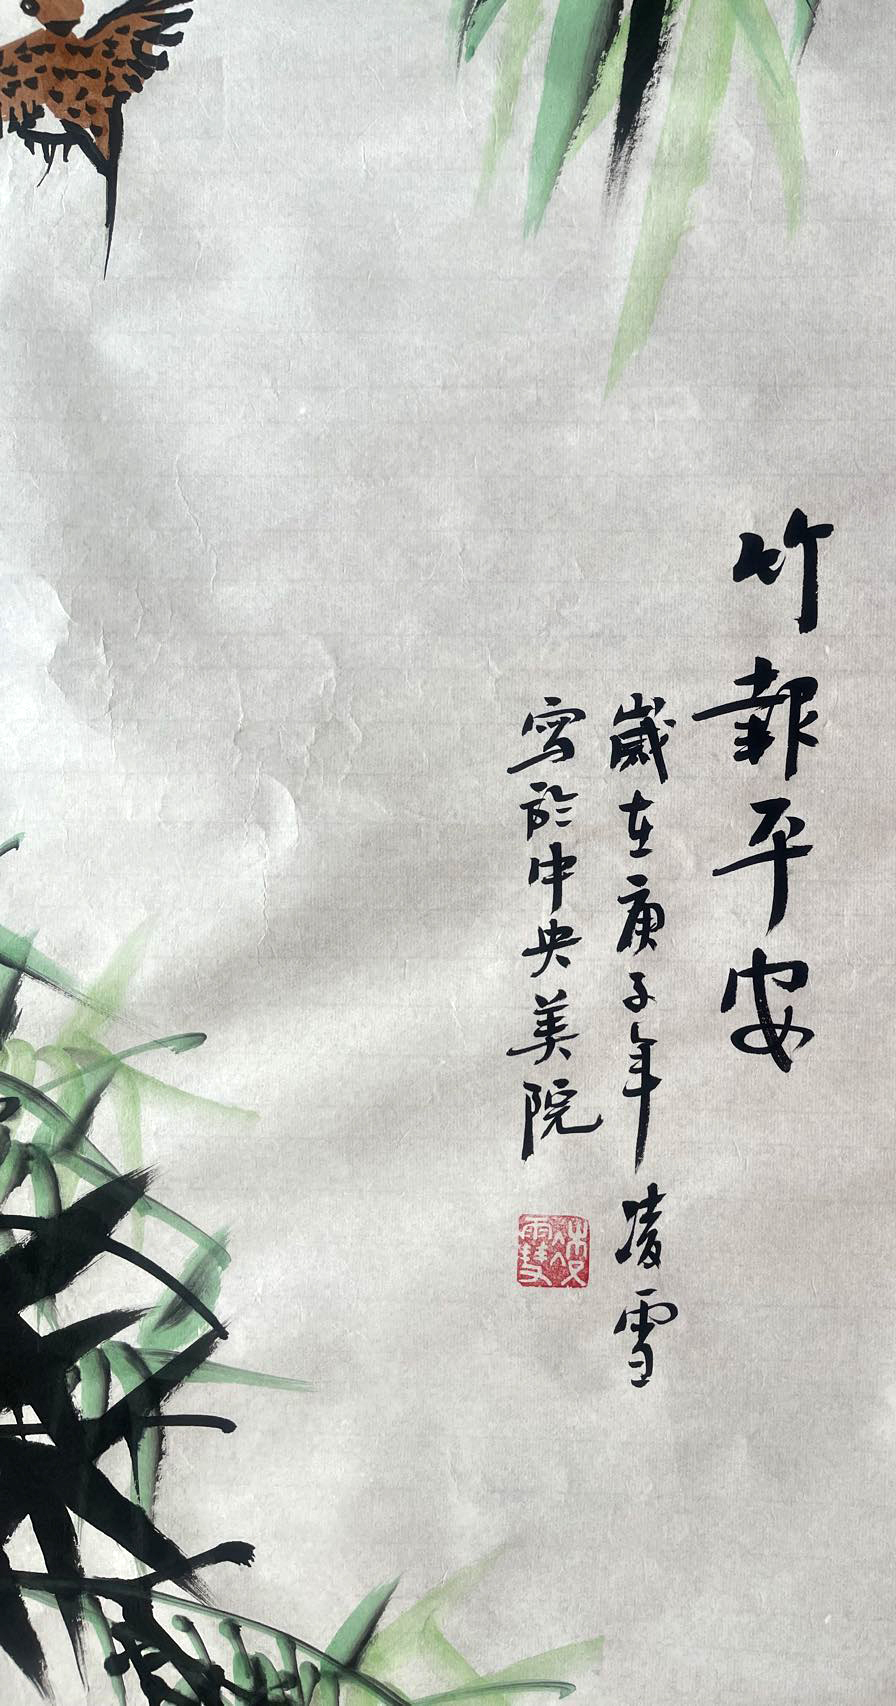 竹報平安
歲在庚子年凌雪
寫於中央美院